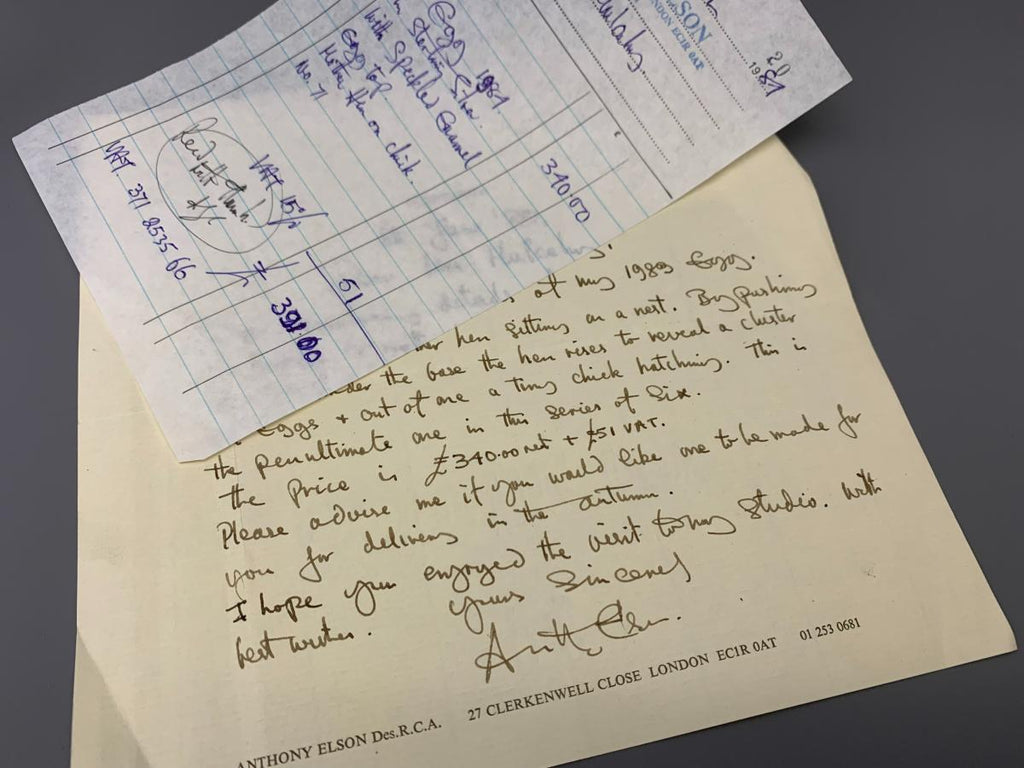 ELSON
LONDON EC1R 0AT
20
1981
Egg 1981
Sterling Silver.
with Speckled Enamel
Egg top
Mother Hen on chick.
No. 71
340.00
VAT 15%
51
391.00
Recd
with thanks
VAT. 371 8535 66
of my 1989 Eggs.
hen sitting on a nest. By pushing
the base the hen rises to reveal a cluster
eggs + out of one a tiny chick hatching. This is
the penultimate one in this series of Six.
the price is £340.00 net + £51 VAT.
Please advise me if you would like one to be made for
you for delivery in the autumn.
I hope you enjoyed the visit to my studio. With
best wishes. yours Sincerely
ANTHONY ELSON Des.R.C.A. 27 CLERKENWELL CLOSE LONDON EC1R 0AT 01 253 0681